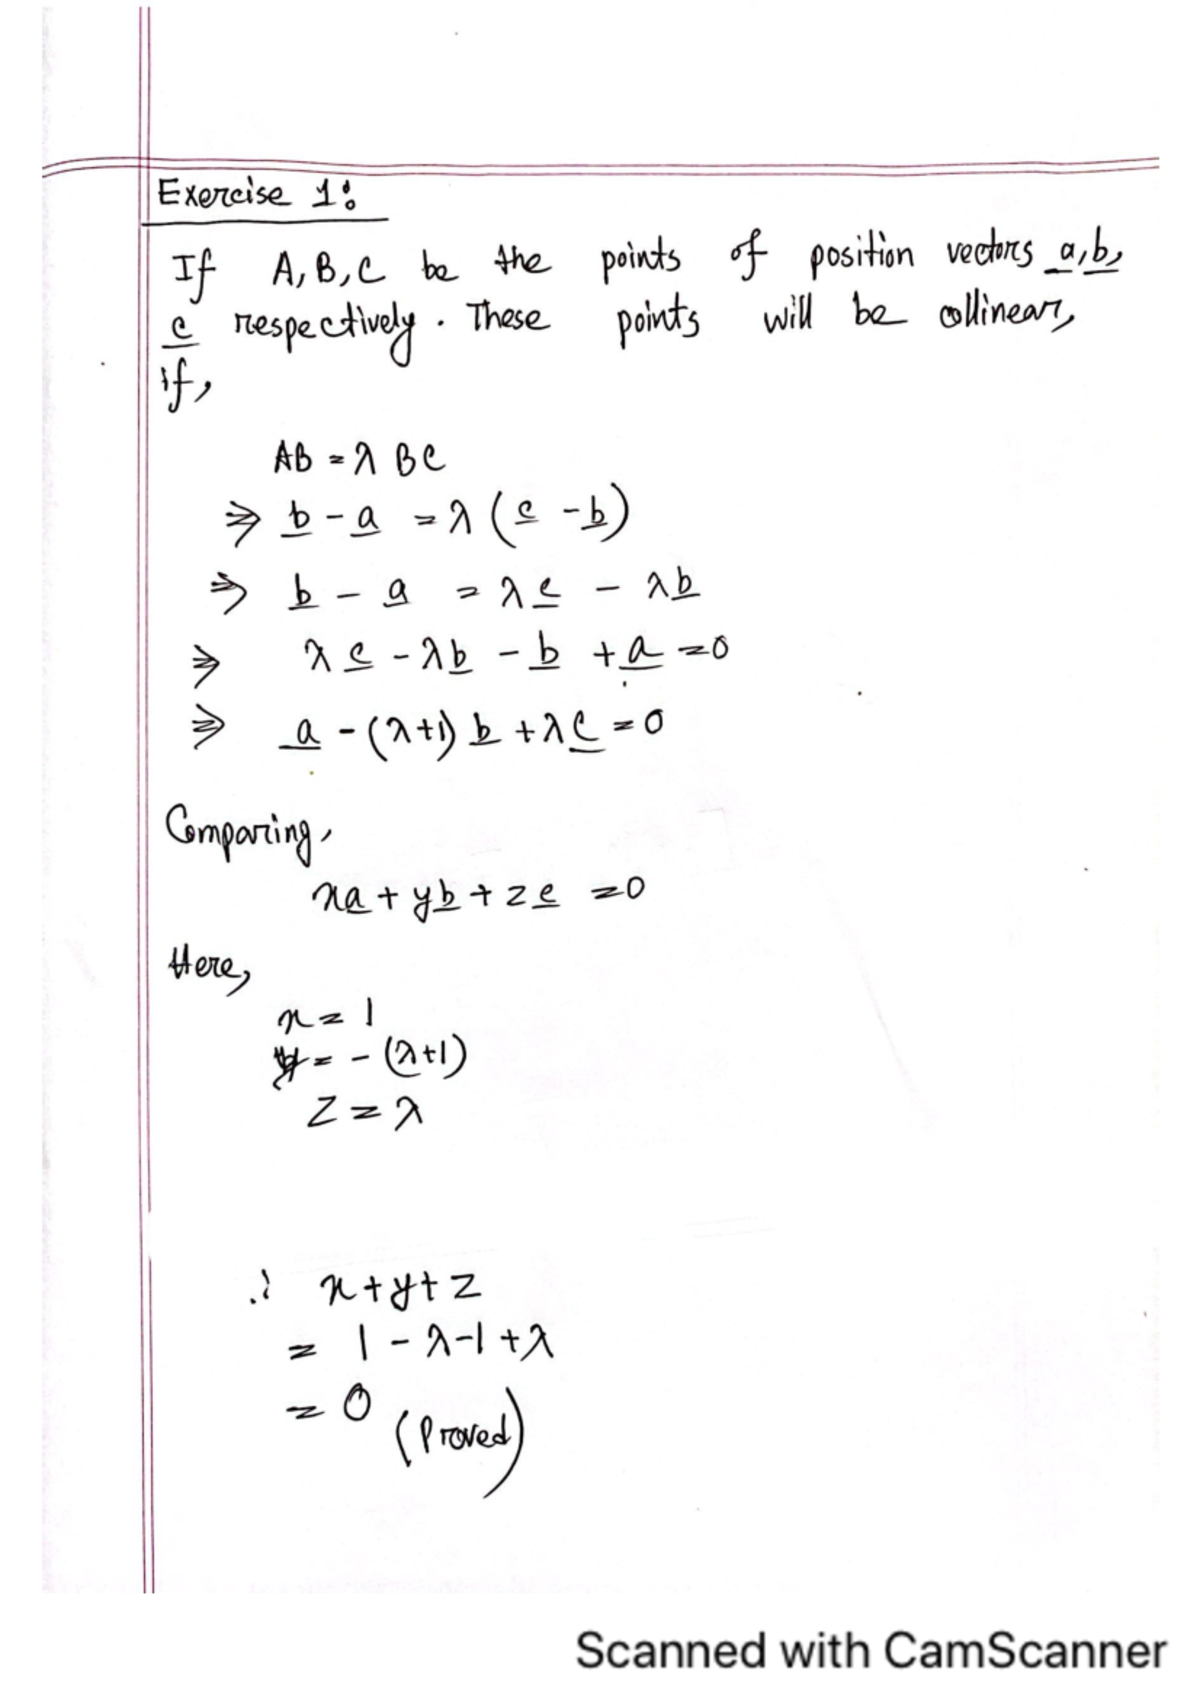 Exercise 1:
If A, B, C be the points of position vectors a, b,
c respectively. These points will be collinear,
if,
AB = λ BC
⇒ b - a = λ (c - b)
⇒ b - a = λc - λb
⇒ λc - λb - b + a = 0
⇒ a - (λ+1) b + λc = 0
Comparing,
xa + yb + zc = 0
Here,
x = 1
y = - (λ+1)
z = λ
∴ x + y + z
= 1 - λ - 1 + λ
= 0
(Proved)
Scanned with CamScanner